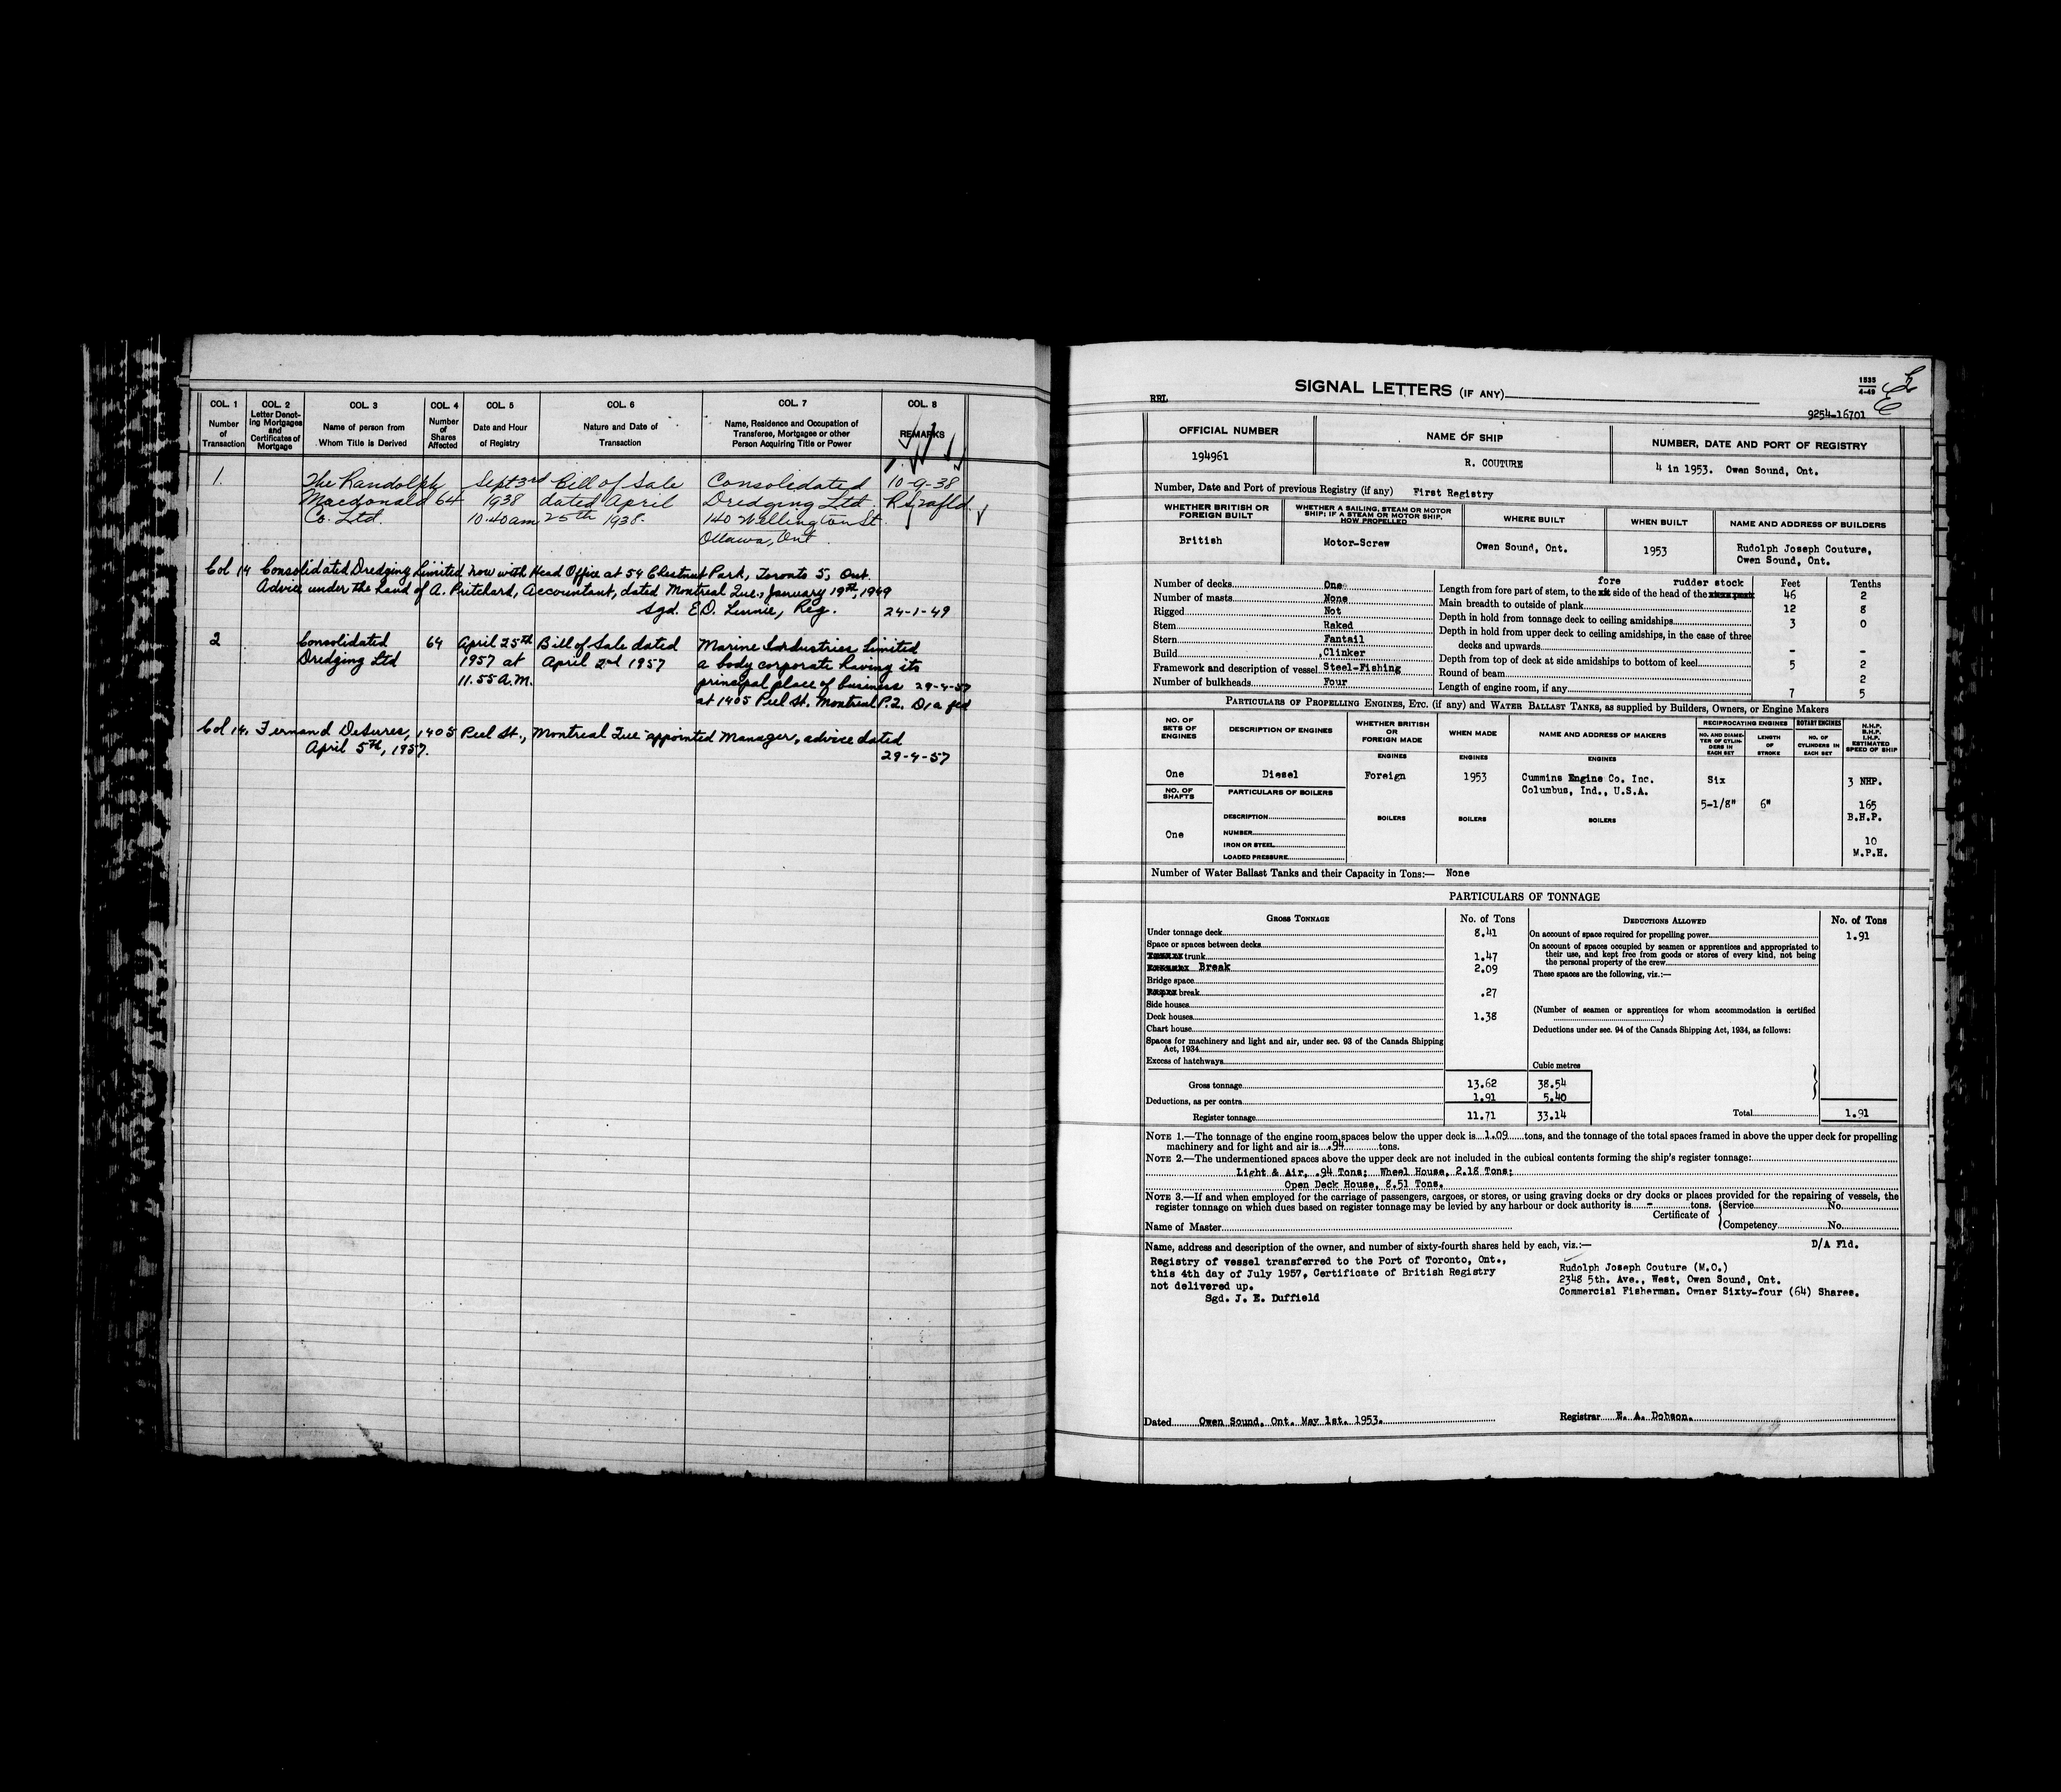 COL. 1 COL. 2 COL. 3 COL. 4 COL. 5 COL. 6 COL. 7 COL. 8
Number of Transaction
Letter Denoting Mortgages and Certificates of Mortgage
Name of person from Whom Title is Derived
Number of Shares Affected
Date and Hour of Registry
Nature and Date of Transaction
Name, Residence and Occupation of Transferee, Mortgagee or other Person Acquiring Title or Power
REMARKS
1. The Randolph Sept 3rd Bill of Sale Consolidated 10-9-38
Macdonald 64 1938 dated April Dredging Ltd
Co. Ltd. 10.40 am 25th 1938. 140 Wellington St.
Ottawa, Ont
Col 14 Consolidated Dredging Limited now with Head Office at 54 Chestnut Park, Toronto 5, Ont.
Advice under the hand of A. Pritchard, Accountant, dated Montreal Que., January 19th, 1949
Sgd. E.D. Lennie, Reg. 24-1-49
2 Consolidated 64 April 25th Bill of Sale dated Marine Industries Limited
Dredging Ltd 1957 at April 2nd 1957 a body corporate having its
11.55 A.M. principal place of business 29-4-57
at 1405 Peel St. Montreal P.Q. D/a fld
Col 14. Fernand DeSures, 1405 Peel St., Montreal Que appointed Manager, advice dated
April 5th, 1957.
29-4-57
SIGNAL LETTERS (IF ANY)
RRL
1535
4-49
9254-16701
OFFICIAL NUMBER NAME OF SHIP NUMBER, DATE AND PORT OF REGISTRY
194961 R. COUTURE 4 in 1953. Owen Sound, Ont.
Number, Date and Port of previous Registry (if any) First Registry
WHETHER BRITISH OR FOREIGN BUILT
WHETHER A SAILING, STEAM OR MOTOR SHIP; IF A STEAM OR MOTOR SHIP, HOW PROPELLED
WHERE BUILT WHEN BUILT NAME AND ADDRESS OF BUILDERS
British Motor-Screw Owen Sound, Ont. 1953 Rudolph Joseph Couture,
Owen Sound, Ont.
Number of decks One
Number of masts None
Rigged Not
Stem Raked
Stern Fantail
Build Clinker
Framework and description of vessel Steel-Fishing
Number of bulkheads Four
fore rudder stock Feet Tenths
Length from fore part of stem, to the side of the head of the 46 2
Main breadth to outside of plank 12 8
Depth in hold from tonnage deck to ceiling amidships 3 0
Depth in hold from upper deck to ceiling amidships, in the case of three
decks and upwards - -
Depth from top of deck at side amidships to bottom of keel 5 2
Round of beam 2
Length of engine room, if any 7 5
PARTICULARS OF PROPELLING ENGINES, ETC. (if any) and WATER BALLAST TANKS, as supplied by Builders, Owners, or Engine Makers
NO. OF SETS OF ENGINES
DESCRIPTION OF ENGINES
WHETHER BRITISH OR FOREIGN MADE
WHEN MADE
NAME AND ADDRESS OF MAKERS
RECIPROCATING ENGINES
NO. AND DIAMETER OF CYLINDERS IN EACH SET
LENGTH OF STROKE
ROTARY ENGINES
NO. OF CYLINDERS IN EACH SET
N.H.P. B.H.P. I.H.P. ESTIMATED SPEED OF SHIP
ENGINES ENGINES ENGINES
One Diesel Foreign 1953 Cummins Engine Co. Inc. Six 3 NHP.
Columbus, Ind., U.S.A.
NO. OF SHAFTS PARTICULARS OF BOILERS
5-1/8" 6" 165
B.H.P.
DESCRIPTION BOILERS BOILERS BOILERS
One NUMBER
IRON OR STEEL 10
LOADED PRESSURE M.P.H.
Number of Water Ballast Tanks and their Capacity in Tons:— None
PARTICULARS OF TONNAGE
GROSS TONNAGE No. of Tons DEDUCTIONS ALLOWED No. of Tons
Under tonnage deck 8.41
Space or spaces between decks
trunk 1.47
Break 2.09
Bridge space
break .27
Side houses
Deck houses 1.38
Chart house
Spaces for machinery and light and air, under sec. 93 of the Canada Shipping
Act, 1934
Excess of hatchways
On account of space required for propelling power 1.91
On account of spaces occupied by seamen or apprentices and appropriated to
their use, and kept free from goods or stores of every kind, not being
the personal property of the crew
These spaces are the following, viz.:—
(Number of seamen or apprentices for whom accommodation is certified
)
Deductions under sec. 94 of the Canada Shipping Act, 1934, as follows:
Cubic metres
Gross tonnage 13.62 38.54
Deductions, as per contra 1.91 5.40
Register tonnage 11.71 33.14 Total 1.91
NOTE 1.—The tonnage of the engine room spaces below the upper deck is 1.09 tons, and the tonnage of the total spaces framed in above the upper deck for propelling
machinery and for light and air is .94 tons.
NOTE 2.—The undermentioned spaces above the upper deck are not included in the cubical contents forming the ship's register tonnage:
Light & Air, .94 Tons; Wheel House, 2.18 Tons;
Open Deck House, 8.51 Tons.
NOTE 3.—If and when employed for the carriage of passengers, cargoes, or stores, or using graving docks or dry docks or places provided for the repairing of vessels, the
register tonnage on which dues based on register tonnage may be levied by any harbour or dock authority is - tons.
Certificate of Service No.
Competency No.
Name of Master
Name, address and description of the owner, and number of sixty-fourth shares held by each, viz.:— D/A Fld.
Registry of vessel transferred to the Port of Toronto, Ont.,
this 4th day of July 1957, Certificate of British Registry
not delivered up.
Sgd. J. E. Duffield
Rudolph Joseph Couture (M.O.)
2348 5th. Ave., West, Owen Sound, Ont.
Commercial Fisherman. Owner Sixty-four (64) Shares.
Dated Owen Sound, Ont. May 1st. 1953. Registrar E. A. Dobson.